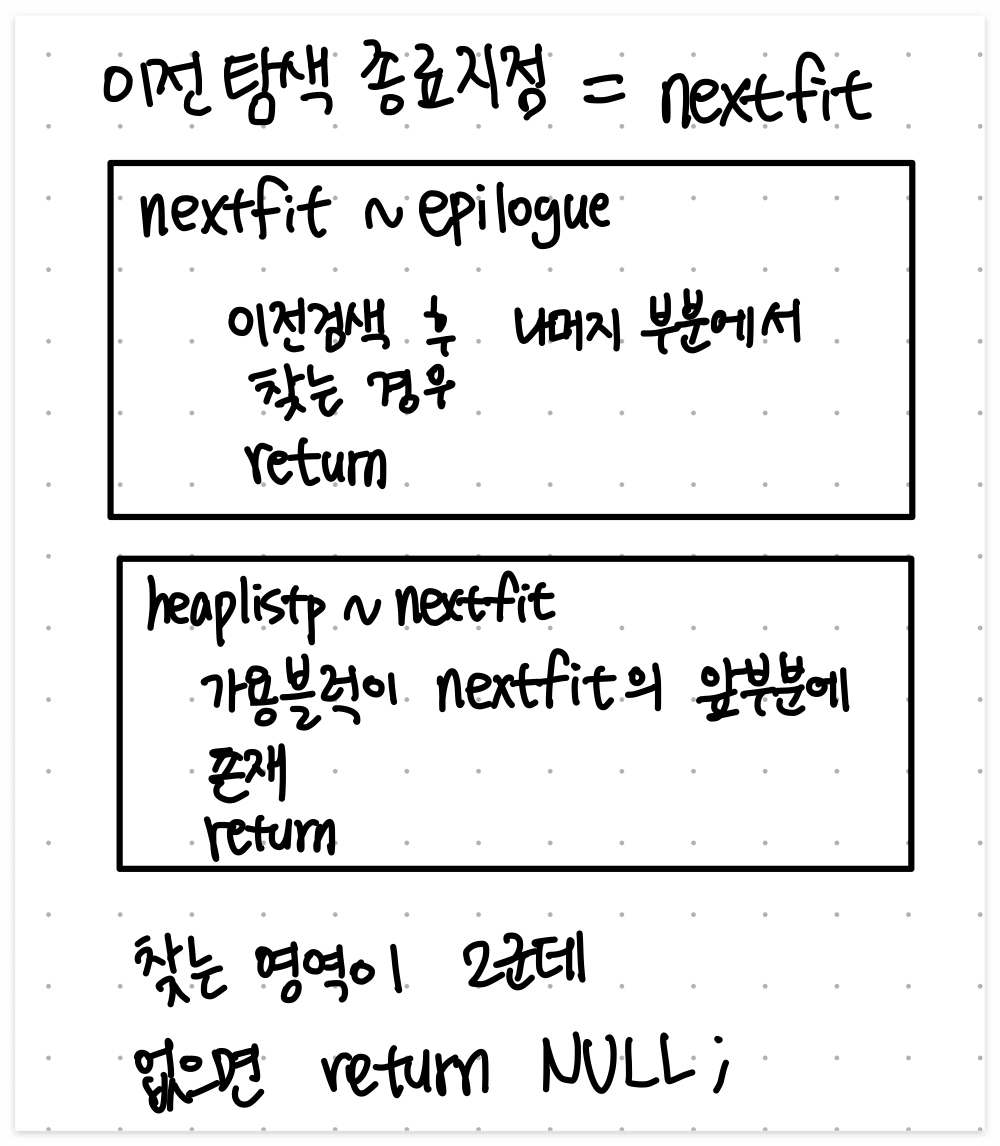 이전 탐색 종료지점 = nextfit
nextfit ~ epilogue
이전검색 후 나머지 부분에서
찾는 경우
return
heaplistp ~ nextfit
가용블럭이 nextfit의 앞부분에
존재
return
찾는 영역이 2군데
없으면 return NULL;